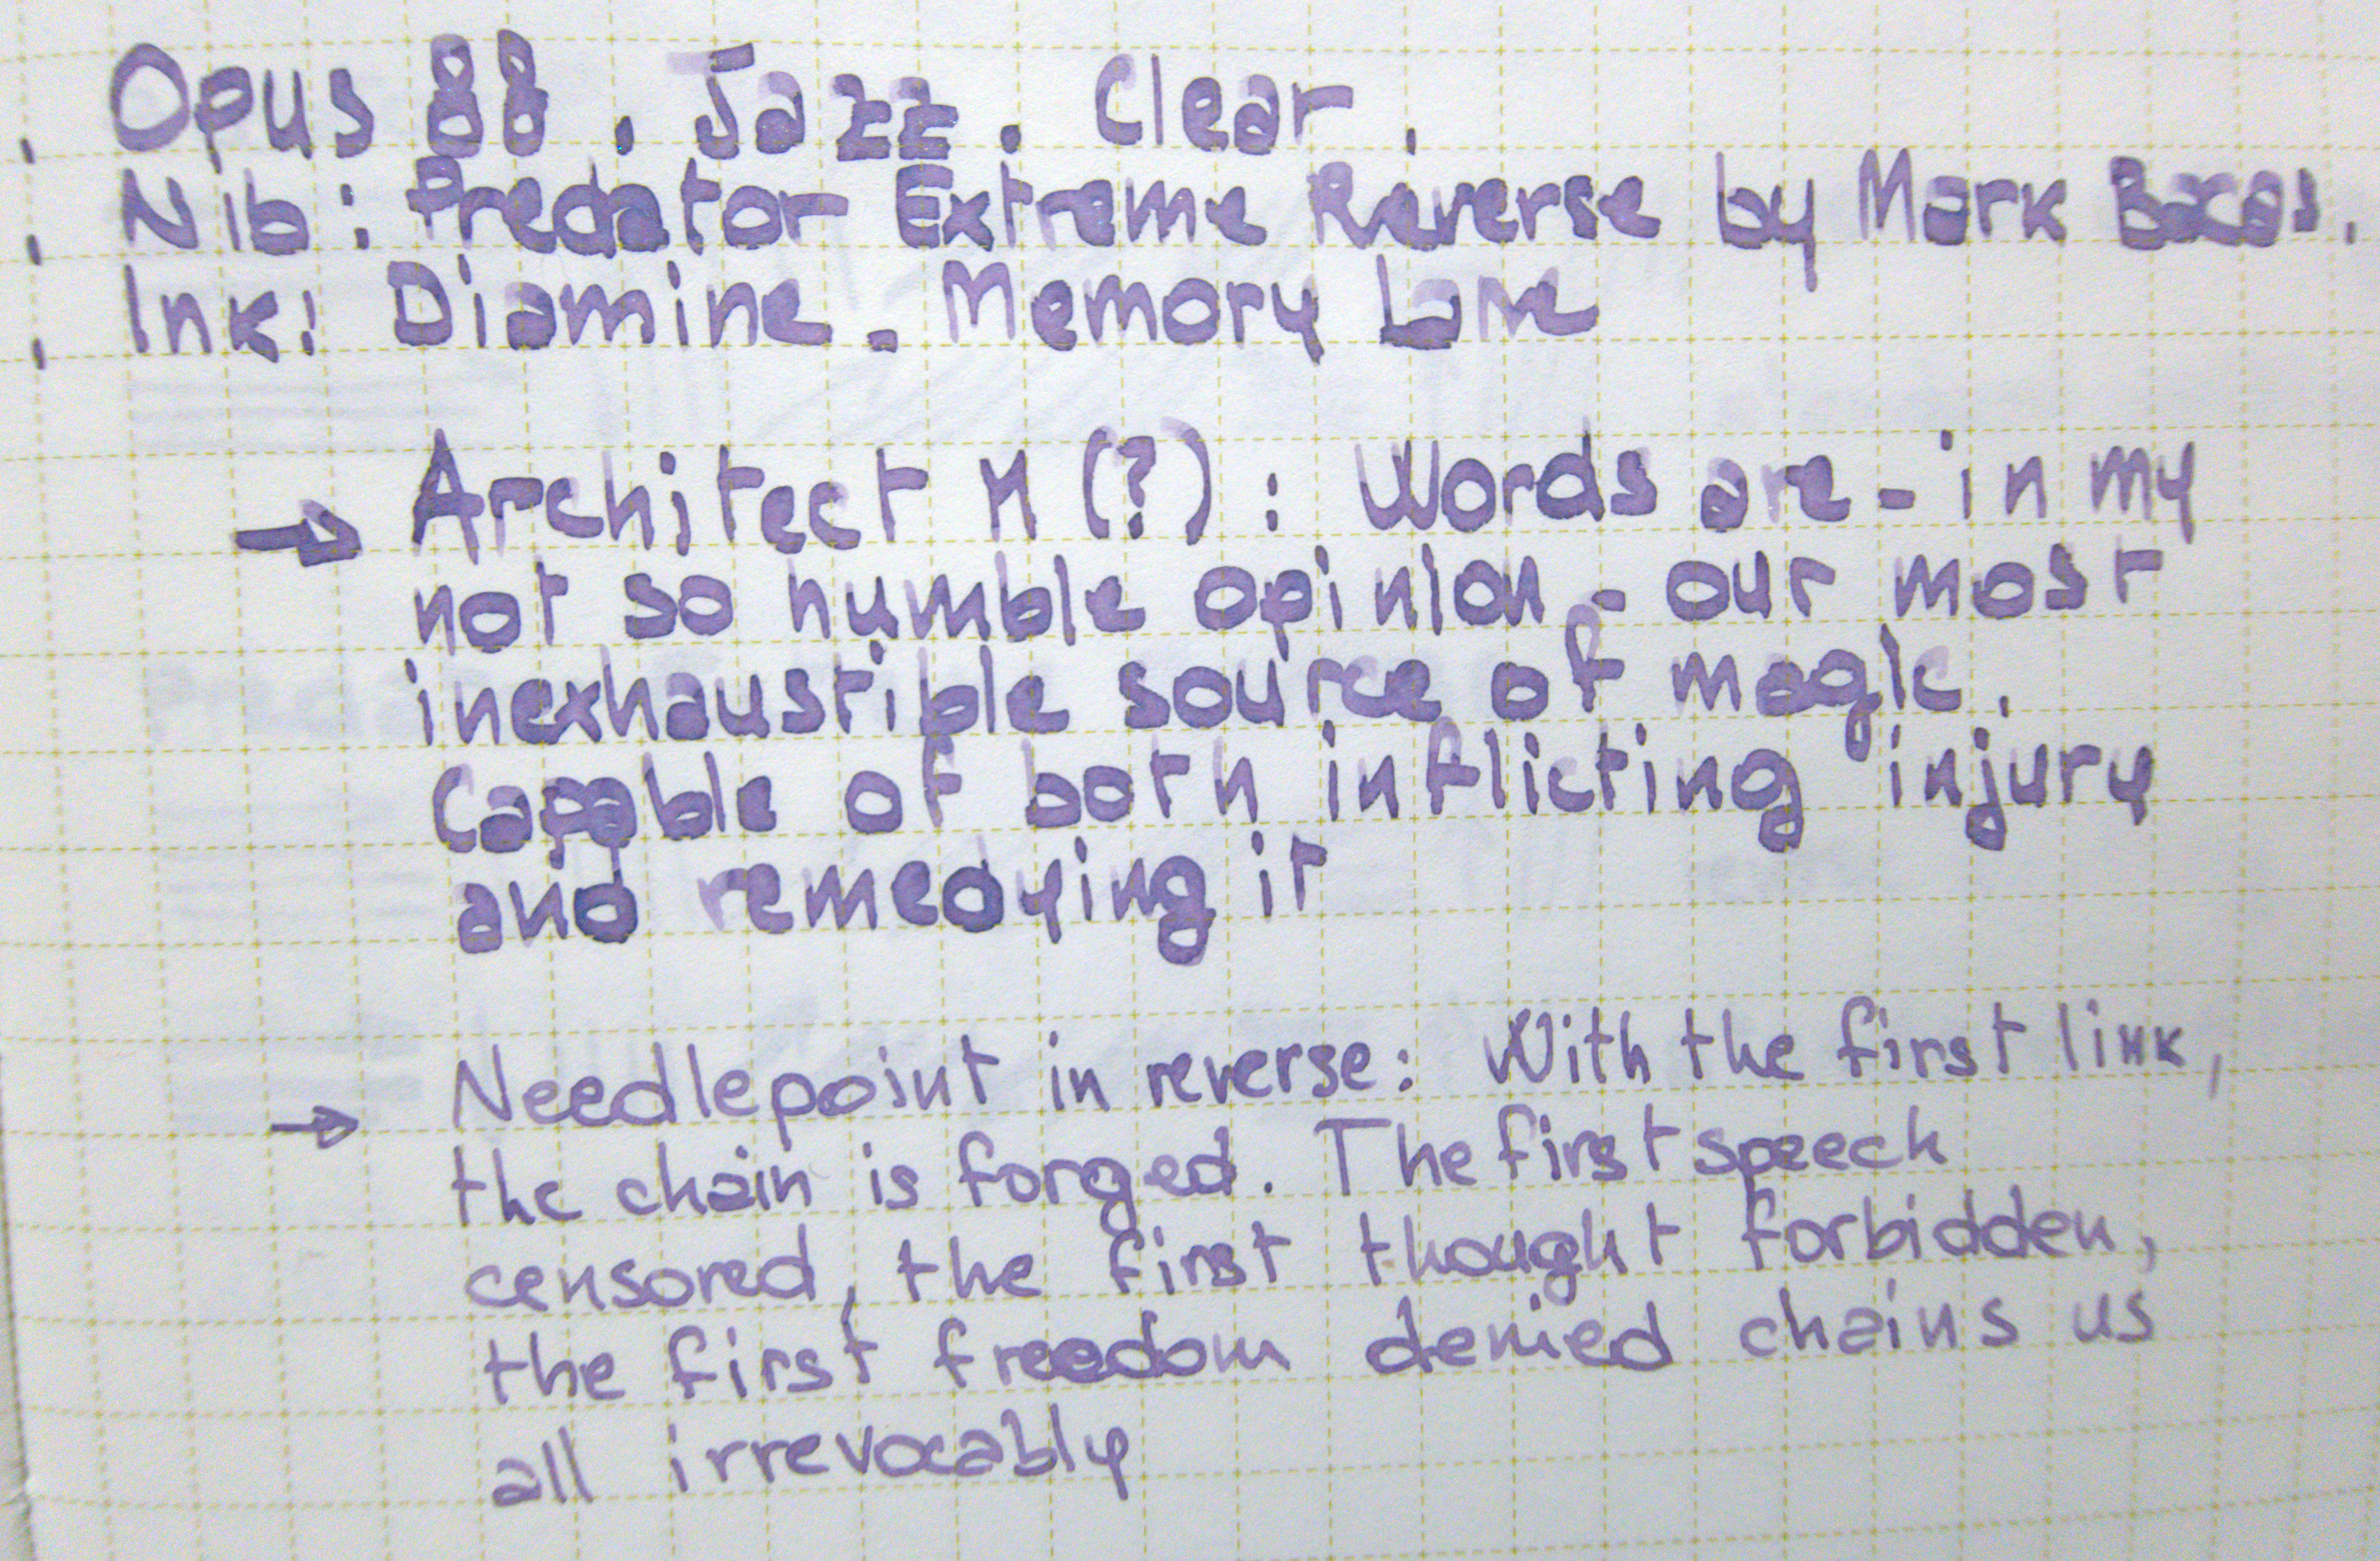 . Opus 88 . Jazz . Clear .
. Nib : Predator Extreme Reverse by Mark Bacas.
. Ink: Diamine - Memory Lane
→ Architect M (?) : Words are - in my
not so humble opinion - our most
inexhaustible source of magic.
Capable of both inflicting injury
and remedying it
→ Needlepoint in reverse: With the first link,
the chain is forged. The first speech
censored, the first thought forbidden,
the first freedom denied chains us
all irrevocably